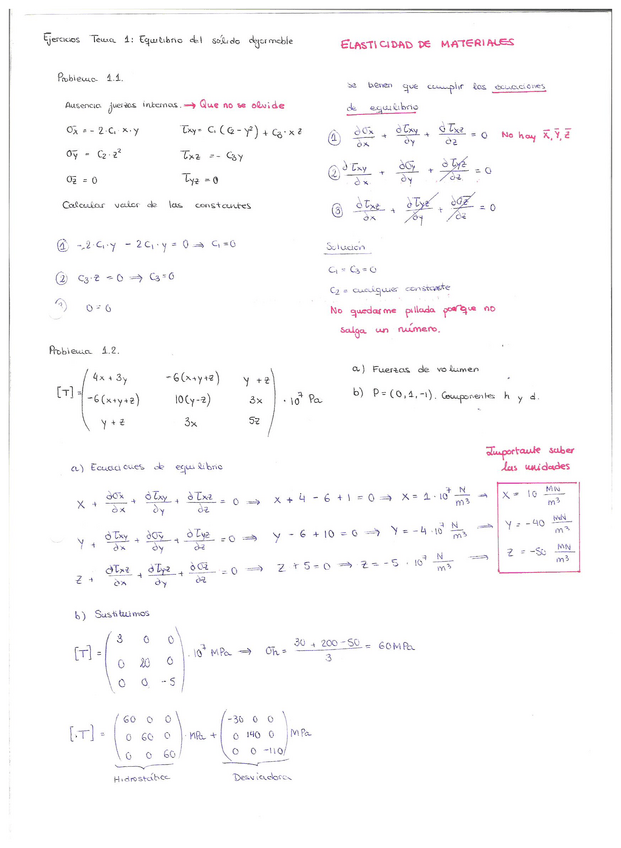 Ejercicios Tema 1: Equilibrio del sólido deformable
ELASTICIDAD DE MATERIALES
Problema 1.1.
Ausencia fuerzas internas. → Que no se olvide
σx = -2·C₁ x·y    τxy = C₁(C₂ - y²) + C₃·xz
σy = C₂·z²    τxz = -C₃y
σz = 0    τyz = 0
Calcular valor de las constantes
① -2·C₁·y - 2C₁·y = 0 ⇒ C₁=0
② C₃·z = 0 ⇒ C₃=0
0=0
se tienen que cumplir las ecuaciones
de equilibrio
① ∂σx/∂x + ∂τxy/∂y + ∂τxz/∂z = 0 No hay X̄, Ȳ, Z̄
② ∂τxy/∂x + ∂σy/∂y + ∂τyz/∂z = 0
③ ∂τxz/∂x + ∂τyz/∂y + ∂σz/∂z = 0
Solución
C₁ = C₃ = 0
C₂ = cualquier constante
No quedarme pillada porque no
salga un número.
Problema 1.2.
[T] = ( 4x+3y    -6(x+y+z)    y+z
-6(x+y+z)    10(y-z)    3x
y+z    3x    5z ) · 10⁷ Pa
a) Fuerzas de volumen
b) P = (0,1,-1). Componentes h y d.
a) Ecuaciones de equilibrio
Importante saber
las unidades
X + ∂σx/∂x + ∂τxy/∂y + ∂τxz/∂z = 0 ⇒ X + 4 - 6 + 1 = 0 ⇒ X = 1·10⁷ N/m³ → X = 10 MN/m³
Y + ∂τxy/∂x + ∂σy/∂y + ∂τyz/∂z = 0 ⇒ Y - 6 + 10 = 0 ⇒ Y = -4·10⁷ N/m³ ⇒ Y = -40 MN/m³
Z + ∂τxz/∂x + ∂τyz/∂y + ∂σz/∂z = 0 ⇒ Z + 5 = 0 ⇒ Z = -5·10⁷ N/m³ ⇒ Z = -50 MN/m³
b) Sustituimos
[T] = ( 3 0 0
0 20 0
0 0 -5 ) · 10⁷ MPa → σh = (30 + 200 - 50)/3 = 60 MPa
[T] = ( 60 0 0
0 60 0
0 0 60 ) · MPa + ( -30 0 0
0 140 0
0 0 -110 ) MPa
Hidrostática    Desviadora